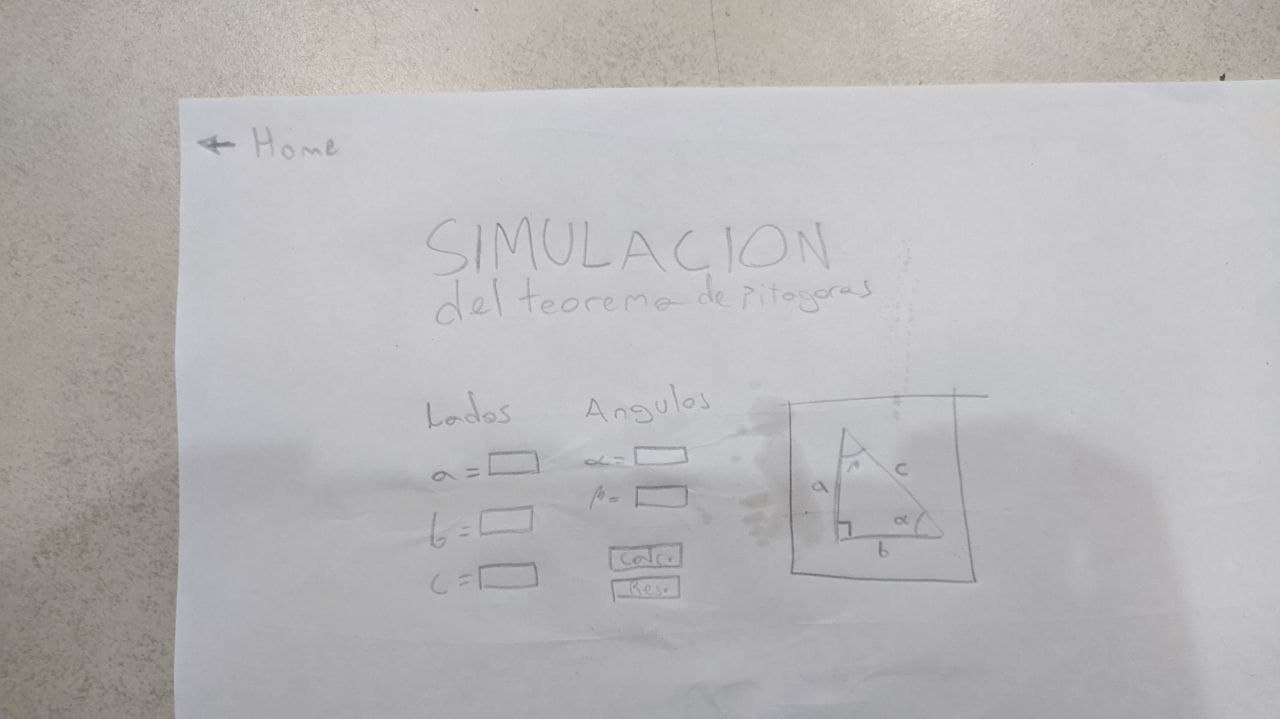 ← Home
SIMULACION
del teorema de pitagoras
Lados Angulos
a = α =
b = β =
c =
Calc.
Res.
β
a c
α
b